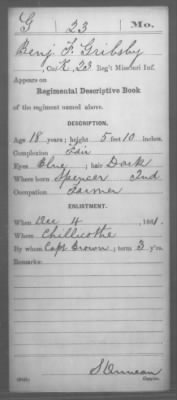 G 23 Mo.
Benj. F. Gribsby
Co. K, 23 Reg't Missouri Inf.
Appears on
Regimental Descriptive Book
of the regiment named above.
DESCRIPTION.
Age 18 years; height 5 feet 10 inches.
Complexion Fair
Eyes Blue; hair Dark
Where born Spencer Ind
Occupation Farmer
ENLISTMENT.
When Dec 4, 1861.
Where Chillicothe
By whom Capt Brown; term 3 y'rs.
Remarks:
Copyist.